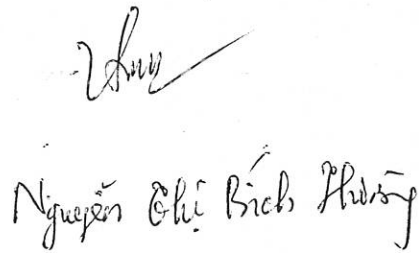 Nguyễn Thị Bích Hường